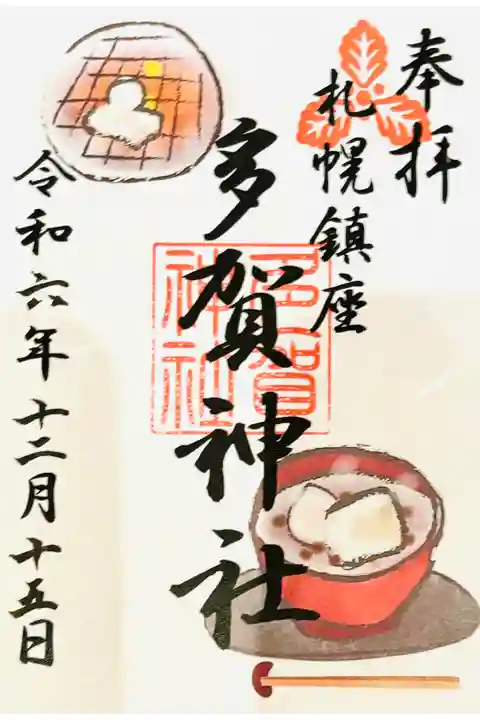 奉拝
札幌鎮座
多賀神社
多賀神社
令和六年十二月十五日